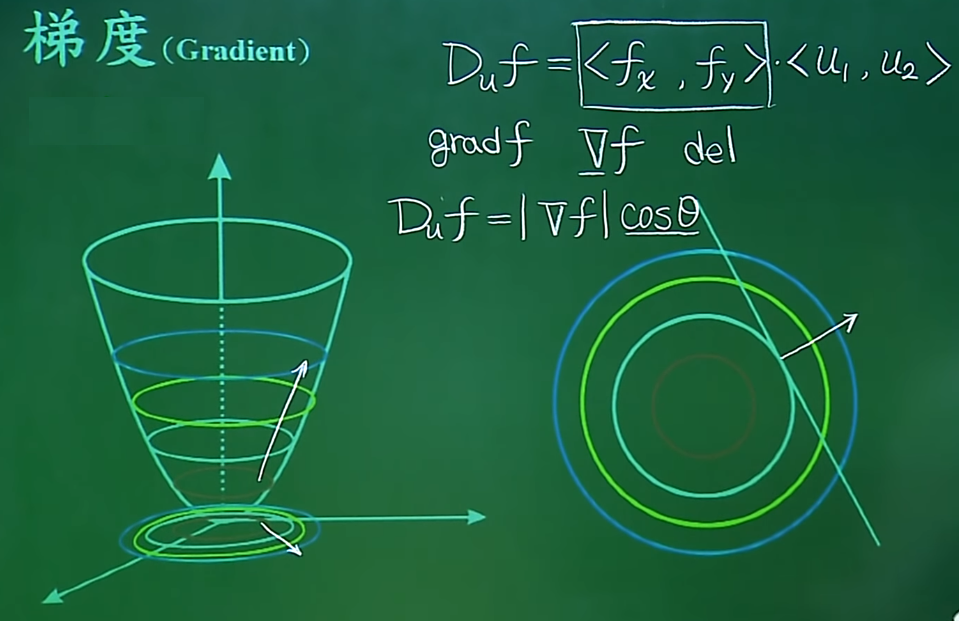 梯度(Gradient)
Dᵤf = <fₓ , fᵧ> · <u₁ , u₂>
grad f ∇f del
Dᵤf = |∇f| cosθ